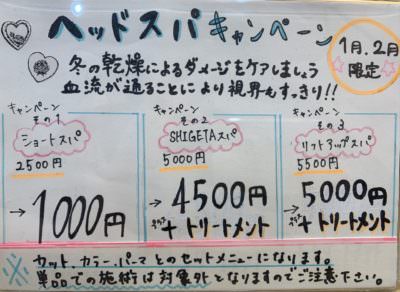 ヘッドスパキャンペーン
1月、2月
限定
冬の乾燥によるダメージをケアしましょう
血流が通ることにより視界もすっきり!!
キャンペーン
その1
ショートスパ
2500円
→1000円
キャンペーン
その2
SHIGETAスパ
5000円
→4500円
+トリートメント
キャンペーン
その3
リフトアップスパ
5500円
→5000円
+トリートメント
※カット、カラー、パーマとのセットメニューになります。
単品での施術は対象外となりますのでご注意下さい。